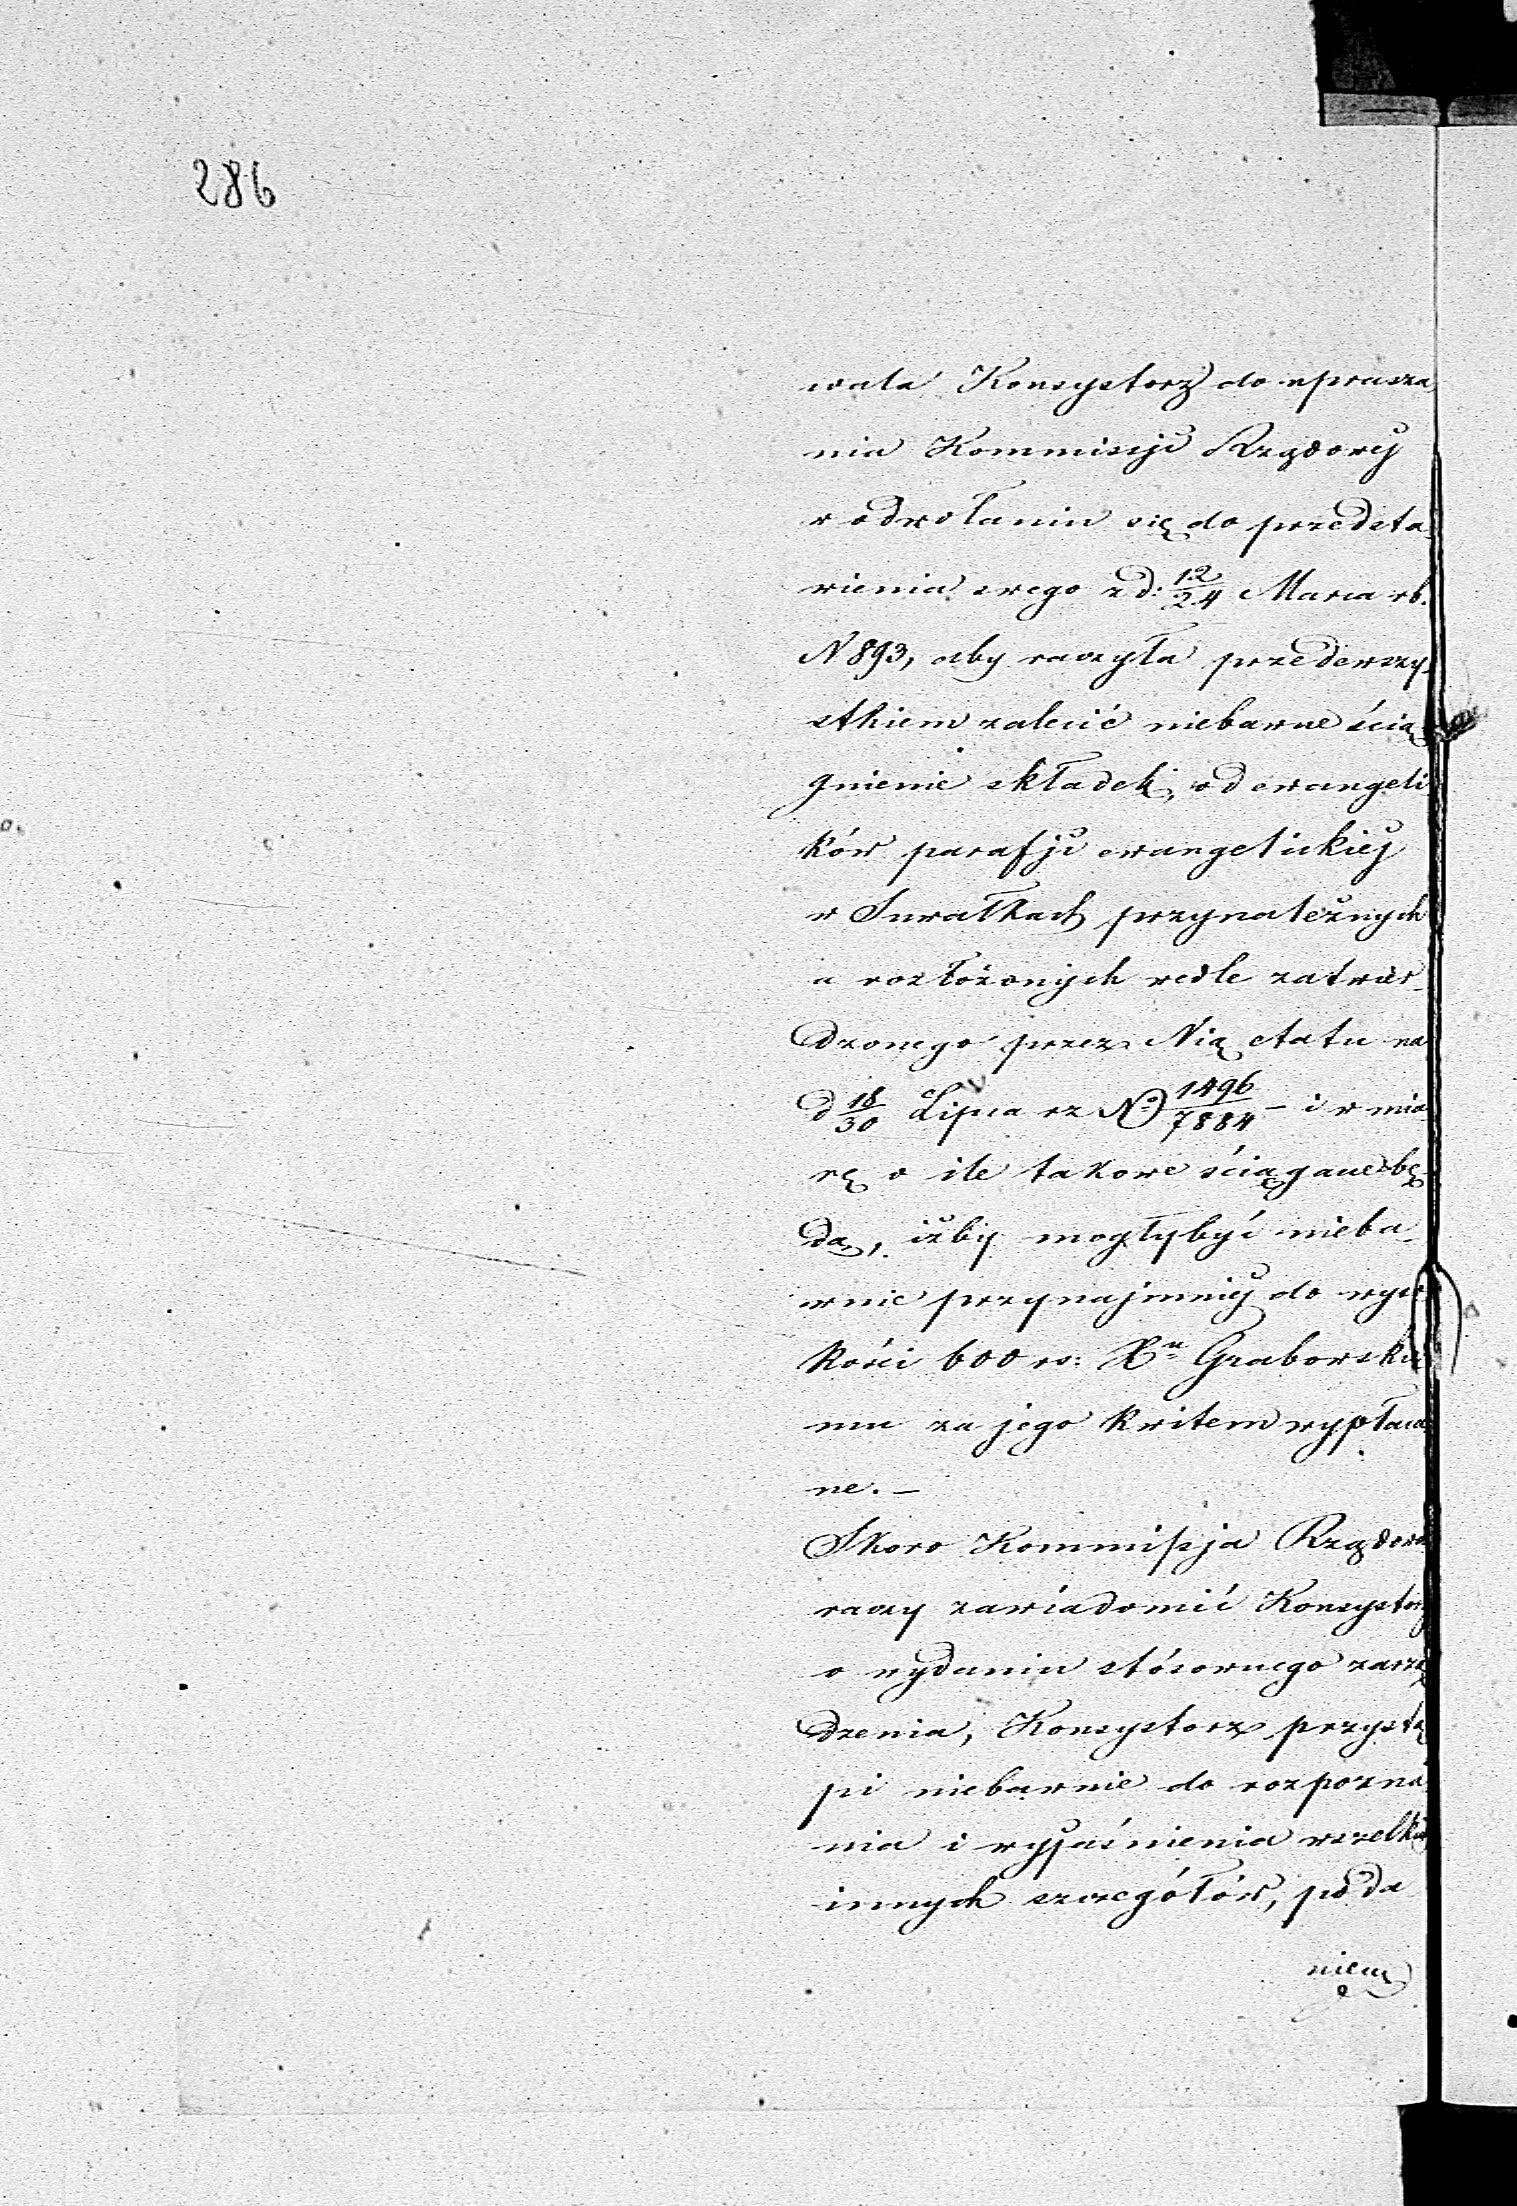 286
wała Konsystorz do uprasza
nia Kommissyi Rządowéj
w odwołaniu się do przedsta
wienia swego z d: 12/24 Marca rb.
N 893, aby raczyła przedewszy
stkiem zalecić niebawne ścią
gnienie składek, od ewangeli
ków parafji ewangelickiéj
w Suwałkach przynależnych
a rozłożonych wedle zatwier-
dzonego przez Nią etatu na
d 18/30 Lipca rz No 1496/7884 - i w mia
rę o ile takowe ściągane bę-
dą, iżby mogły być nieba-
wnie przynajmniéj do wyso
kości 600 rs: Xu Grabowskie
mu za jego kwitem wypłaca
ne. —
Skoro Kommissja Rządowa
raczy zawiadomić Konsystorz
o wydaniu stósownego zarzą
dzenia, Konsystorz przystą
pi niebawnie do rozpozna
nia i wyjaśnienia wszelkich
innych szczegółów, poda
niem